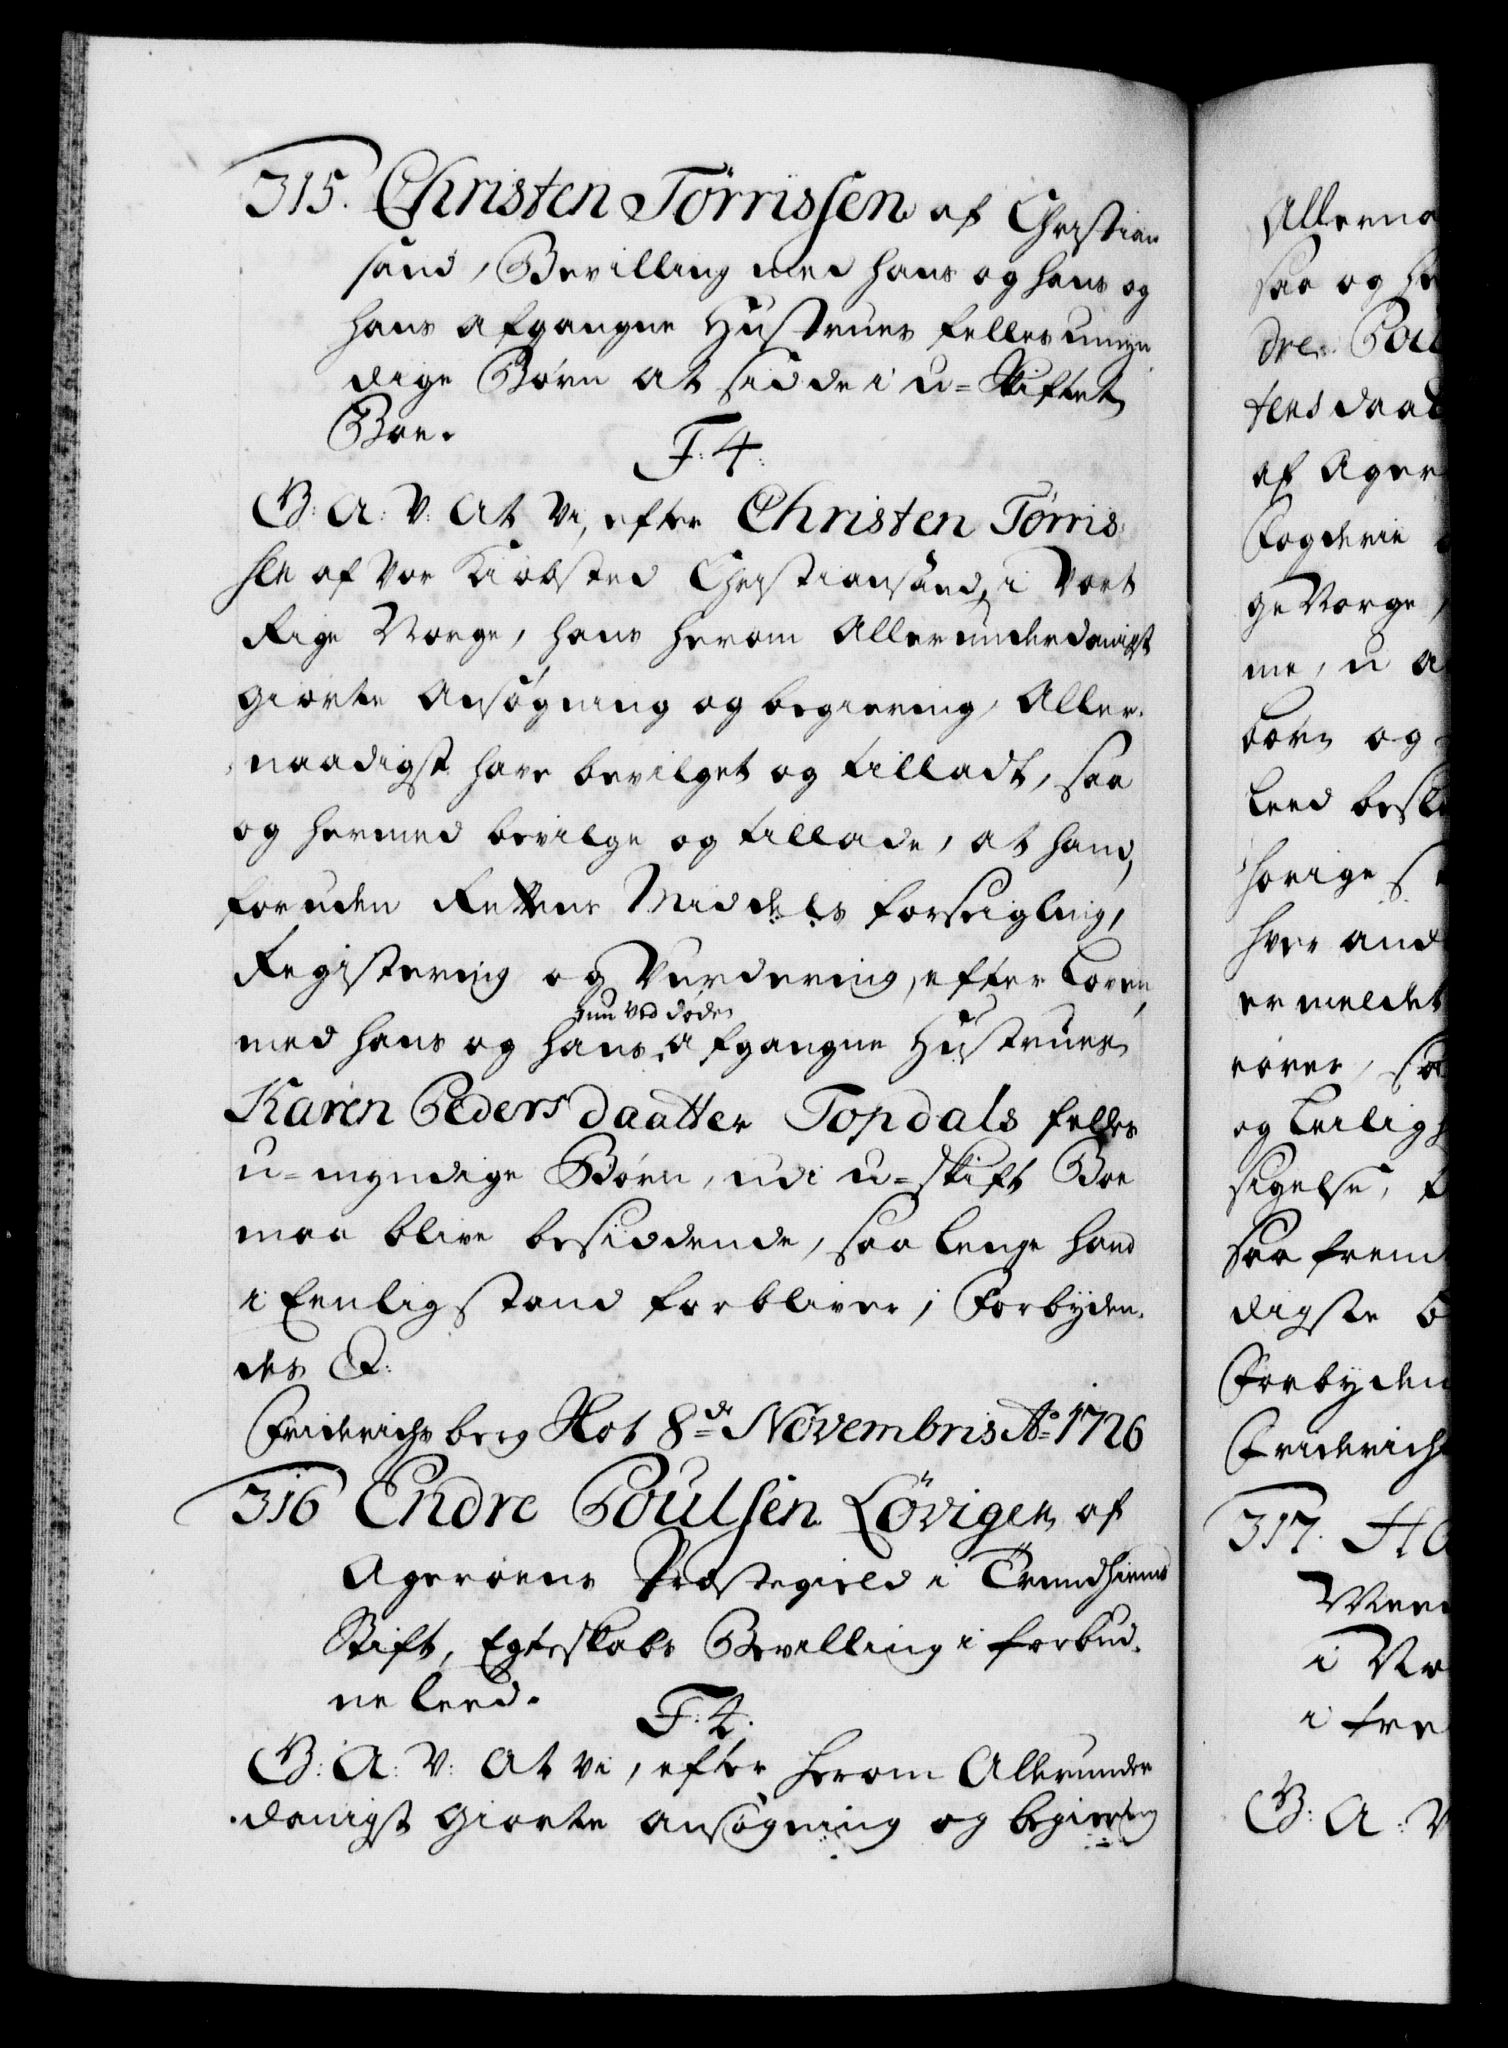 315. Christen Tørrissen af Christian
sand, Bevilling med hans og hans og
hans afgangne Hustrues felles umyn
dige Børn at sidde i u-Skiftet
Boe.
F: 4.
G: A: V: At Vi, efter Christen Tørris¬
sen af Vor Kiøbsted Christiansand, i Vort
Rige Norge, hans herom Allerunderdanigst
giorte Ansøgning og begiering, Aller¬
naadigst have bevilget og tilladt, saa
og hermed bevilge og tillade, at hand,
foruden Rettens Middels forseigling,
Registering og Vurdering, efter Loven,
med hans og hans nu ved døden afgangne Hustrues
Karen Peders daatter Topdals felles
u-myndige Børn, udi u-skift Boe
maa blive besiddende, saa lenge hand
i Eenlig stand forbliver; Forbyden¬
des &:
Friderichsberg Slot 8de Novembris Ao 1726
316 Endre Poulsen Løvigen af
Agerøens Præstegield i Trundhiems
Stift, Egteskabs Bevilling i forbud¬
ne Leed.
F: 4.
G: A: V: At Vi, efter herom Allerunder
danigst giorte ansøgning og begiering
Allerna
saa og he
dre Poul
tens daat
af Ager
Fogderie
ge Norge,
me, u a
børn og
Leed besl
horige
hver and
er meldet
rører, sa
og Leilig
sigelse,
saa frem
digste
Forbyden
Friderich
317.
i No
i tre
G: A: V